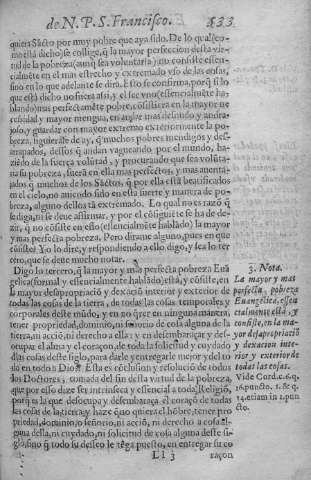 de N. P. S. Francisco. 833
quiera Sãcto por muy pobre que aya sido. De lo qual (co-
mo està dicho) se collige, q̃ la mayor perfeccion desta vir-
tud de la pobreza (aunq̃ sea voluntaria) no consiste essen-
cialmẽte en el mas estrecho y extremado vso de las cosas,
sino en lo que adelante se dira. Esto se confirma, porq̃ si lo
que està dicho no fuera assi, y el ser vno (essencialmẽte ha-
blando) mas perfectamẽte pobre, cõsistiera en la mayor ne
cessidad y mayor mengua, en andar mas desnudo y andra-
joso, y guardar con mayor extremo exteriormente la po-
breza, siguierase de ay, q̃ muchos pobres mendigos y des-
arrapados, dessos q̃ andan vagueando por el mundo, ha-
ziẽdo de la fuerça volũtad, y procurando que sea volũta-
ria su pobreza, fuerã en ella mas perfectos, y mas auenta-
jados q̃ muchos de los Sãctos, q̃ por ella estã beatificados
en el cielo, no auiendo sido en esta suerte y manera de po-
breza, alguno dellos tã extremado. Lo qual no es razõ q̃
se diga, ni se deue affirmar, y por el cõsiguiẽte se ha de de-
zir, q̃ no cõsiste en esto (essencialmẽte hablãdo) la mayor
y mas perfecta pobreza. Pero dirame alguno, pues en que
cõsiste? Yo lo dire, y respondiendo a ello digo, y sea lo ter
cero, que se deue mucho notar.
Digo lo tercero, q̃ la mayor y mas perfecta pobreza Euã
gelica (formal y essencialmente hablãdo) està, y cõsiste, en
la mayor desapropriaciõ y dexaciõ interior y exterior de
todas las cosas de la tierra, de todas las cosas temporales y
corporales deste mũdo, y en no q̃rer en ninguna manera
tener propriedad, dominio, ni señorio de cosa alguna de la
tierra, ni acciõ, ni derecho a ellas, y en desembaraçar y des-
ocupar el alma y el coraçon, de toda solicitud y cuydado
de las cosas deste siglo, para darle y entregarle mejor y del to
do en todo a Dios. Esta es cõclusion y resoluciõ de todos
los Doctores, tomada del fin desta virtud de la pobreza,
que por esso dize ser intrinseca y essencial a toda Religiõ,
porq̃ es la que desocupa y desembaraça el coraçõ de todas
las cosas de la tierra, y haze q̃ no quiera el hõbre, tener pro
priedad, dominio, o señorio, ni acciõ, ni derecho a cosa al
guna della, ni cuydado, ni solicitud de cosa alguna deste si-
glo, sino q̃ todo su desseo le tẽga puesto, en entregar su co
Ll 3 raçon
3. Nota.
La mayor y mas
perfecta pobreza
Euangelica, essen
cialmente està, y
consiste, en la ma-
yor desapropriaciõ
y dexacion inte-
rior y exterior de
todas las cosas.
Vide Cord. c. 6. q.
16. puncto. 1. & q.
14. etiam in 2. pun
cto.